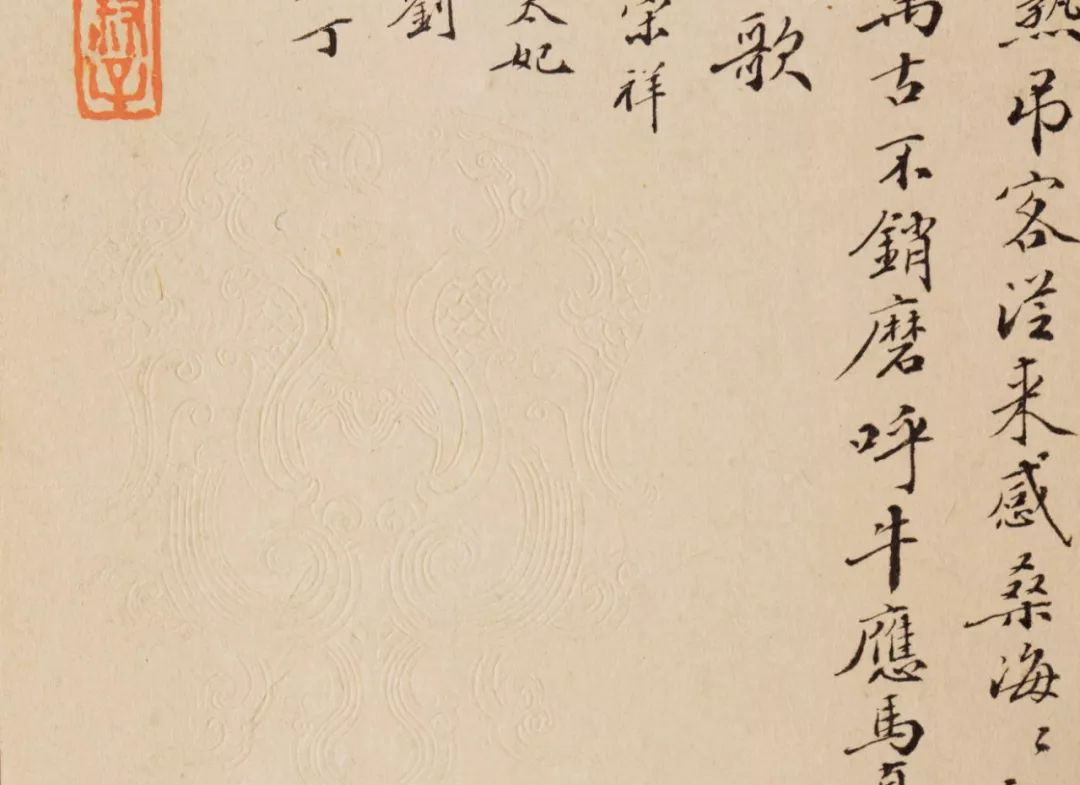 吊客從来感桑海〻
萬古不銷磨呼牛應馬
歌
祥
太妃
劉
丁